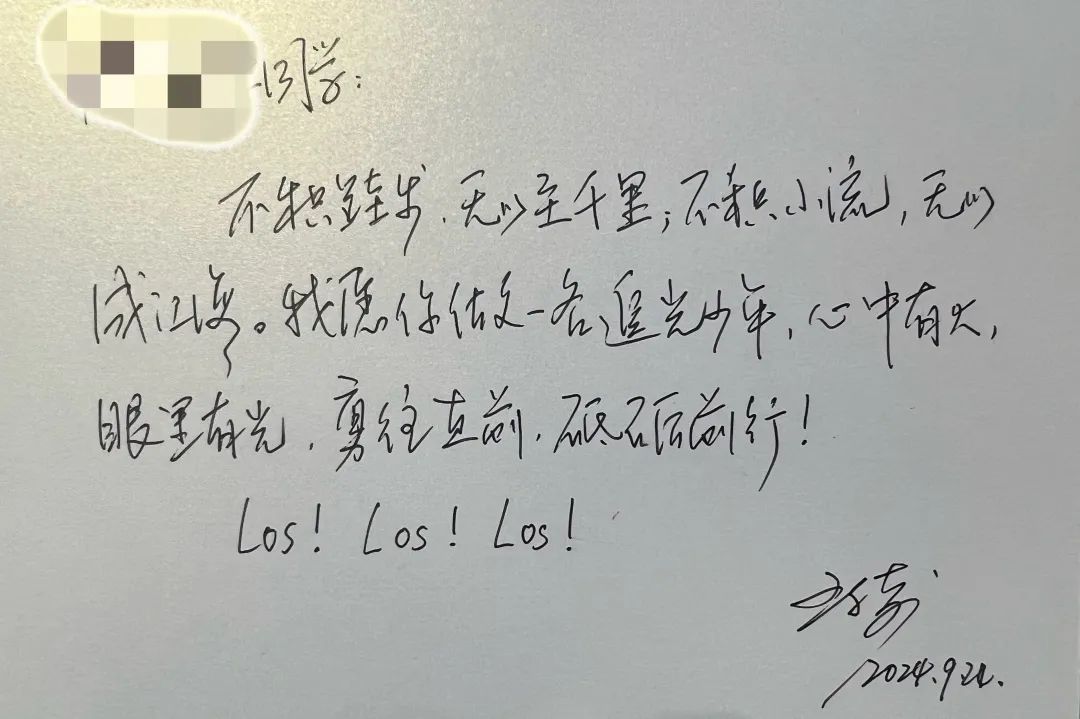 同学：
不积跬步，无以至千里；不积小流，无以
成江海。我愿你做一名追光少年，心中有火，
眼里有光，勇往直前，砥砺前行！
Los！Los！Los！
2024.9.21.